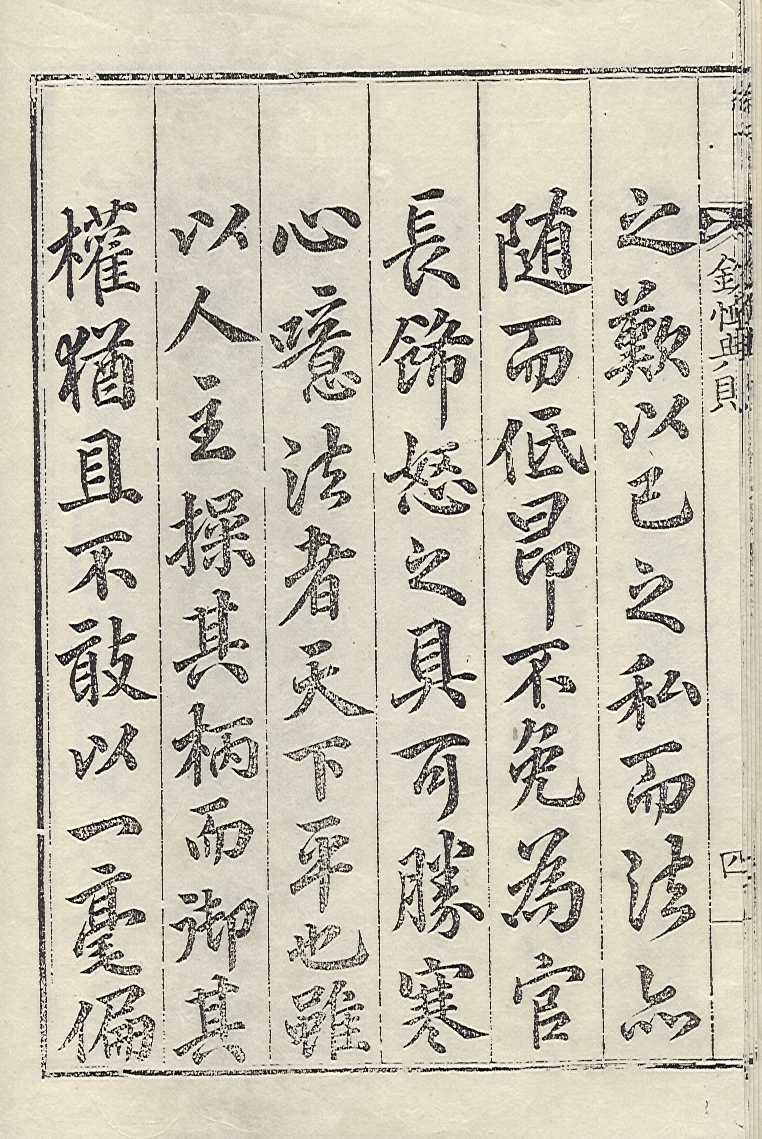 之歎以已之私而法亦
随而低昂不免為官
長飾怒之具可勝寒
心噫法者天下平也雖
以人主操其柄而御其
權猶且不敢以一毫偏
四